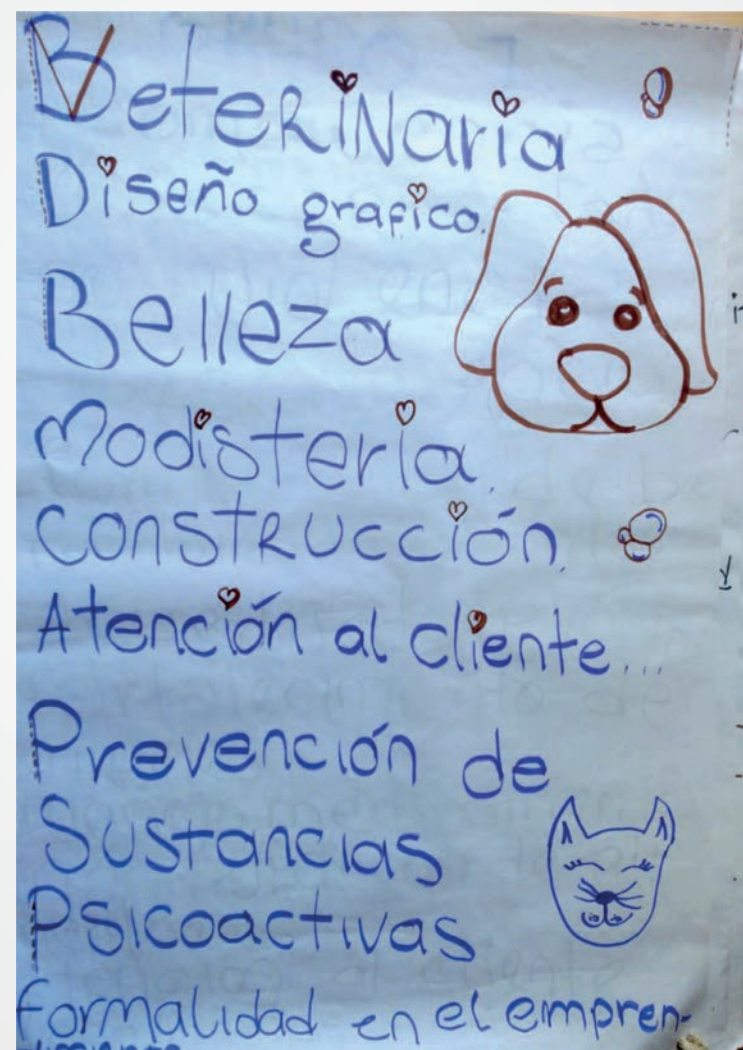 Veterinaria
Diseño grafico.
Belleza
Modistería.
Construcción.
Atención al cliente...
Prevención de
Sustancias
Psicoactivas
Formalidad en el empren-
dimiento